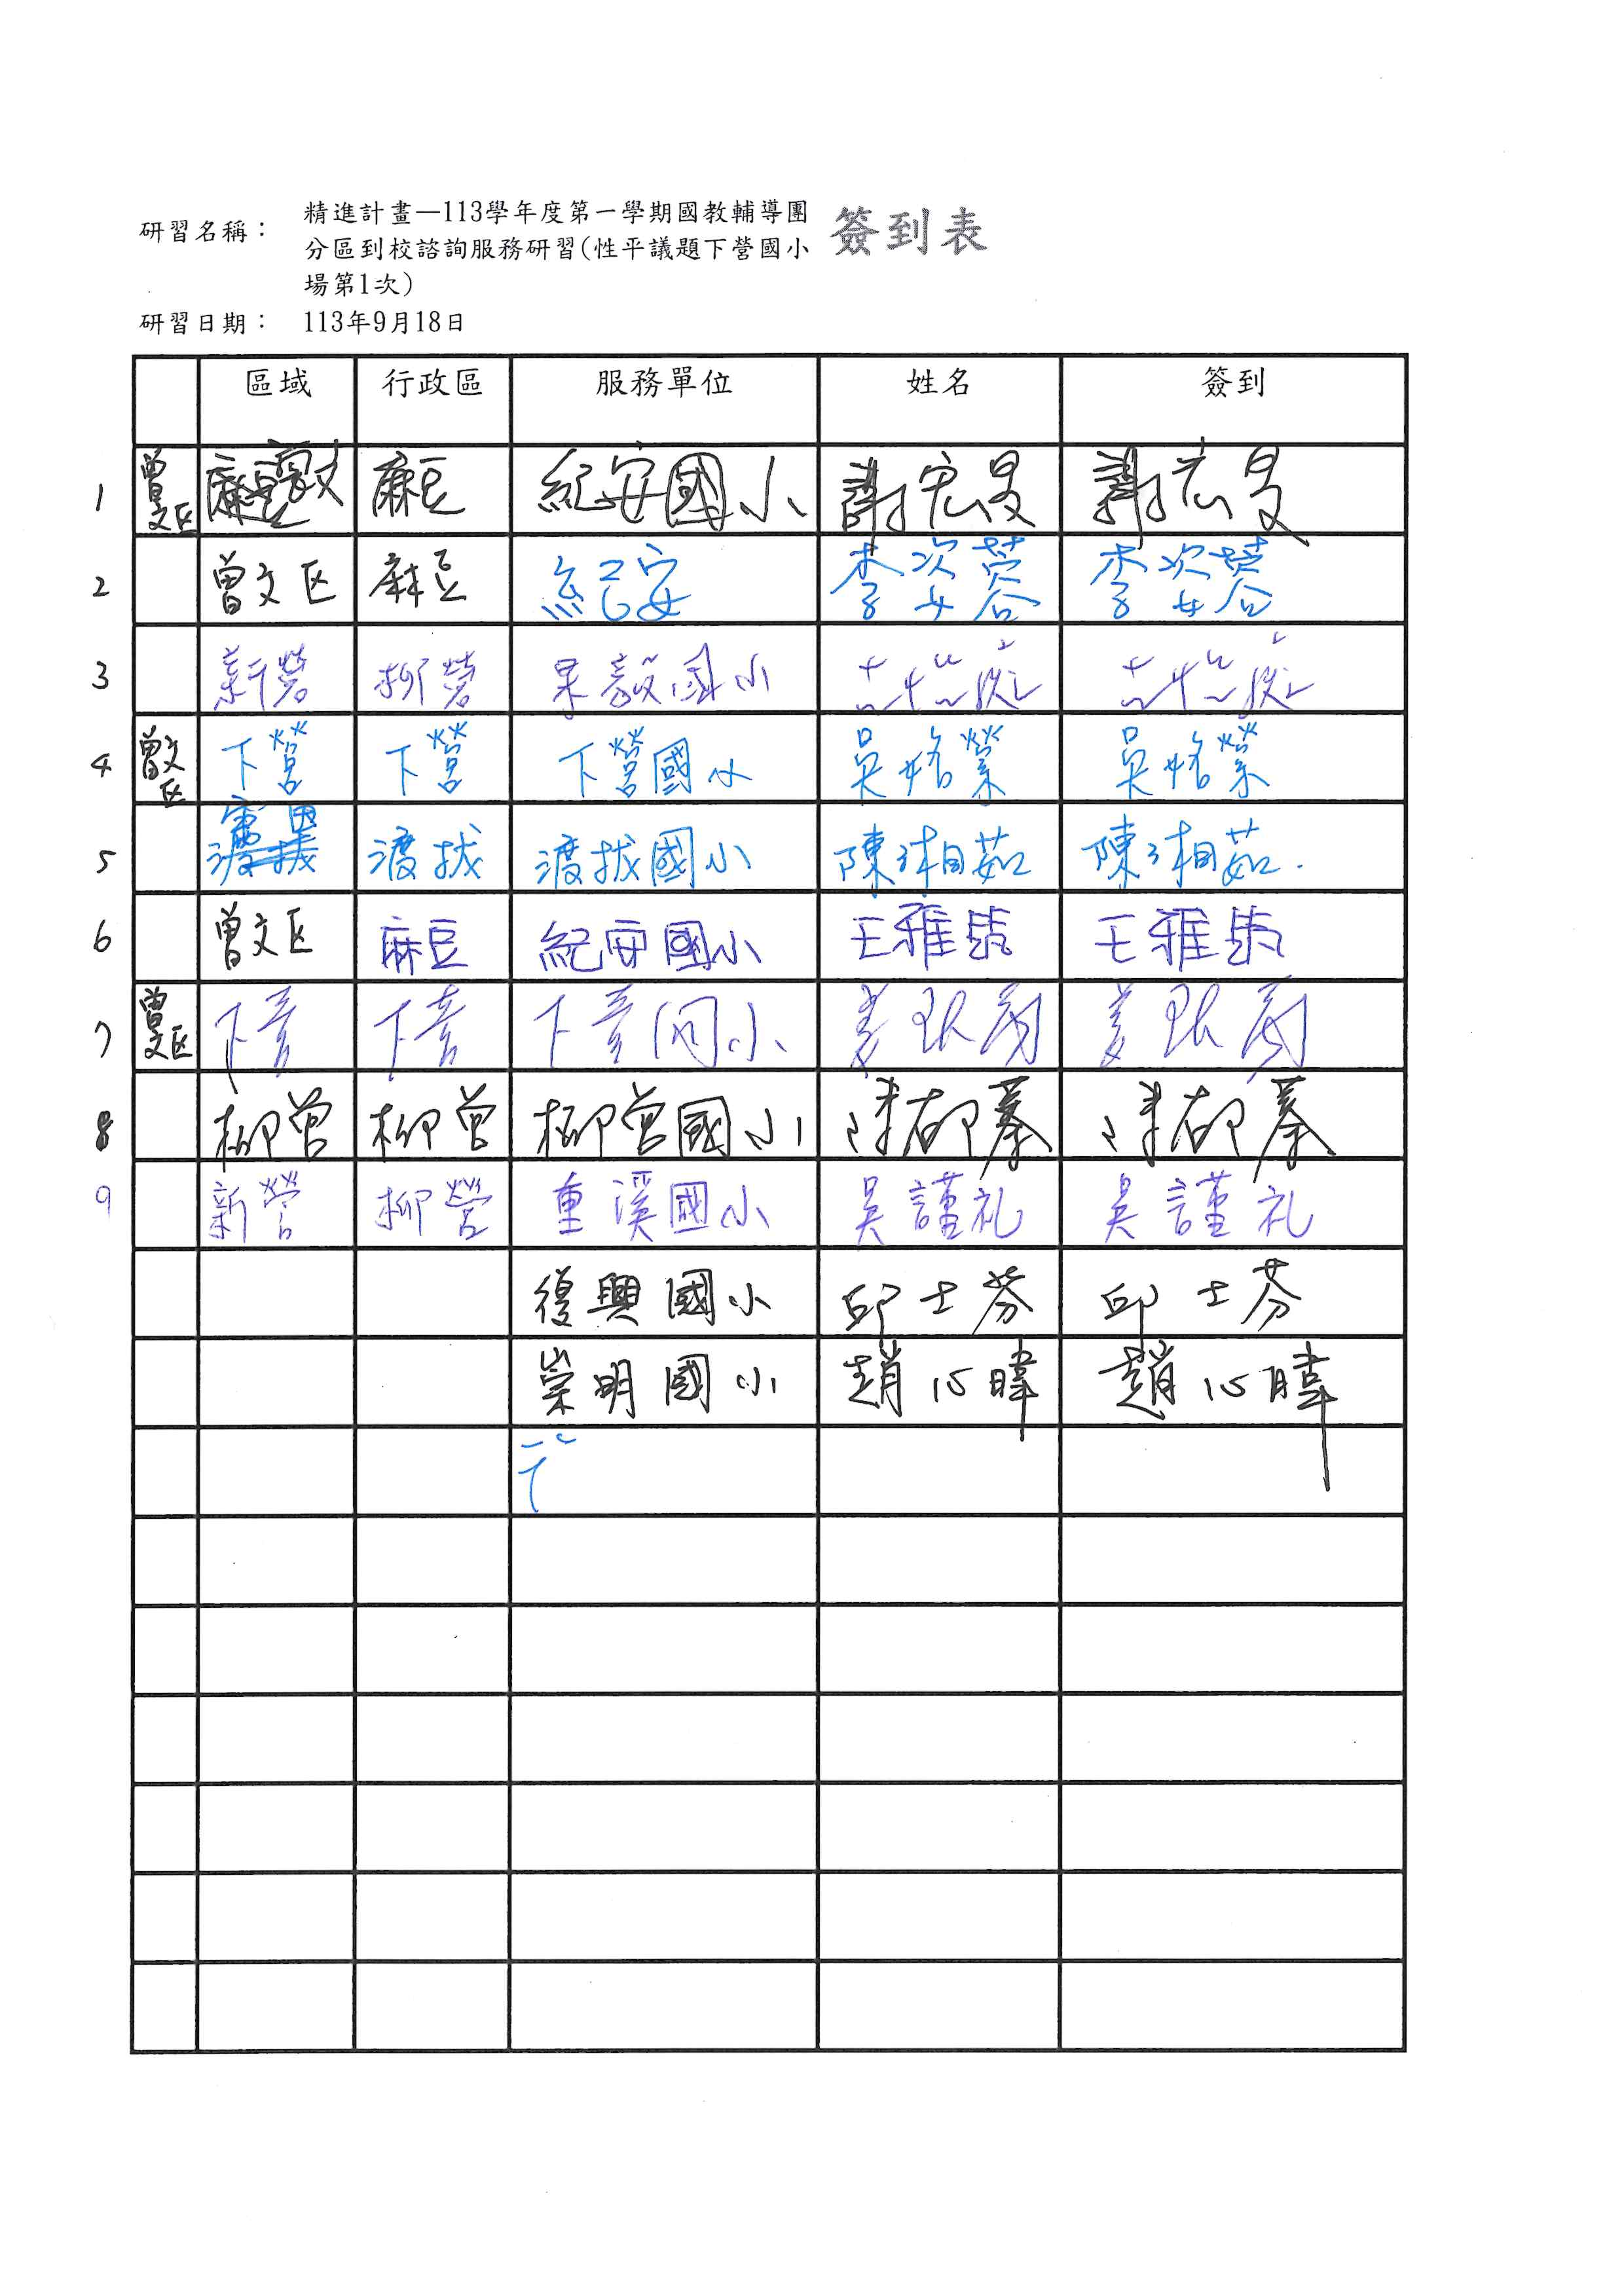 研習名稱： 精進計畫—113學年度第一學期國教輔導團
分區到校諮詢服務研習(性平議題下營國小
場第1次)
簽到表
研習日期： 113年9月18日
區域 行政區 服務單位 姓名 簽到
1 曾文区 麻豆 紀安國小 謝宏
2 曾文区 麻豆 紀安 李姿蓉 李姿蓉
3 新營 柳營 果毅國小
4 曾文区 下營 下營 下營國小 吳榮 吳榮
5 渡拔 渡拔國小 陳湘茹 陳湘茹
6 曾文区 麻豆 紀安國小 王雅 王雅
7 曾文区 下營 下營 下營国小 姜 姜
8 柳營 柳營 柳營國小 陳郁蓁 陳郁蓁
9 新營 柳營 重溪國小 吳謹礼 吳謹礼
復興國小 邱士芬 邱士芬
崇明國小 趙心暐 趙心暐